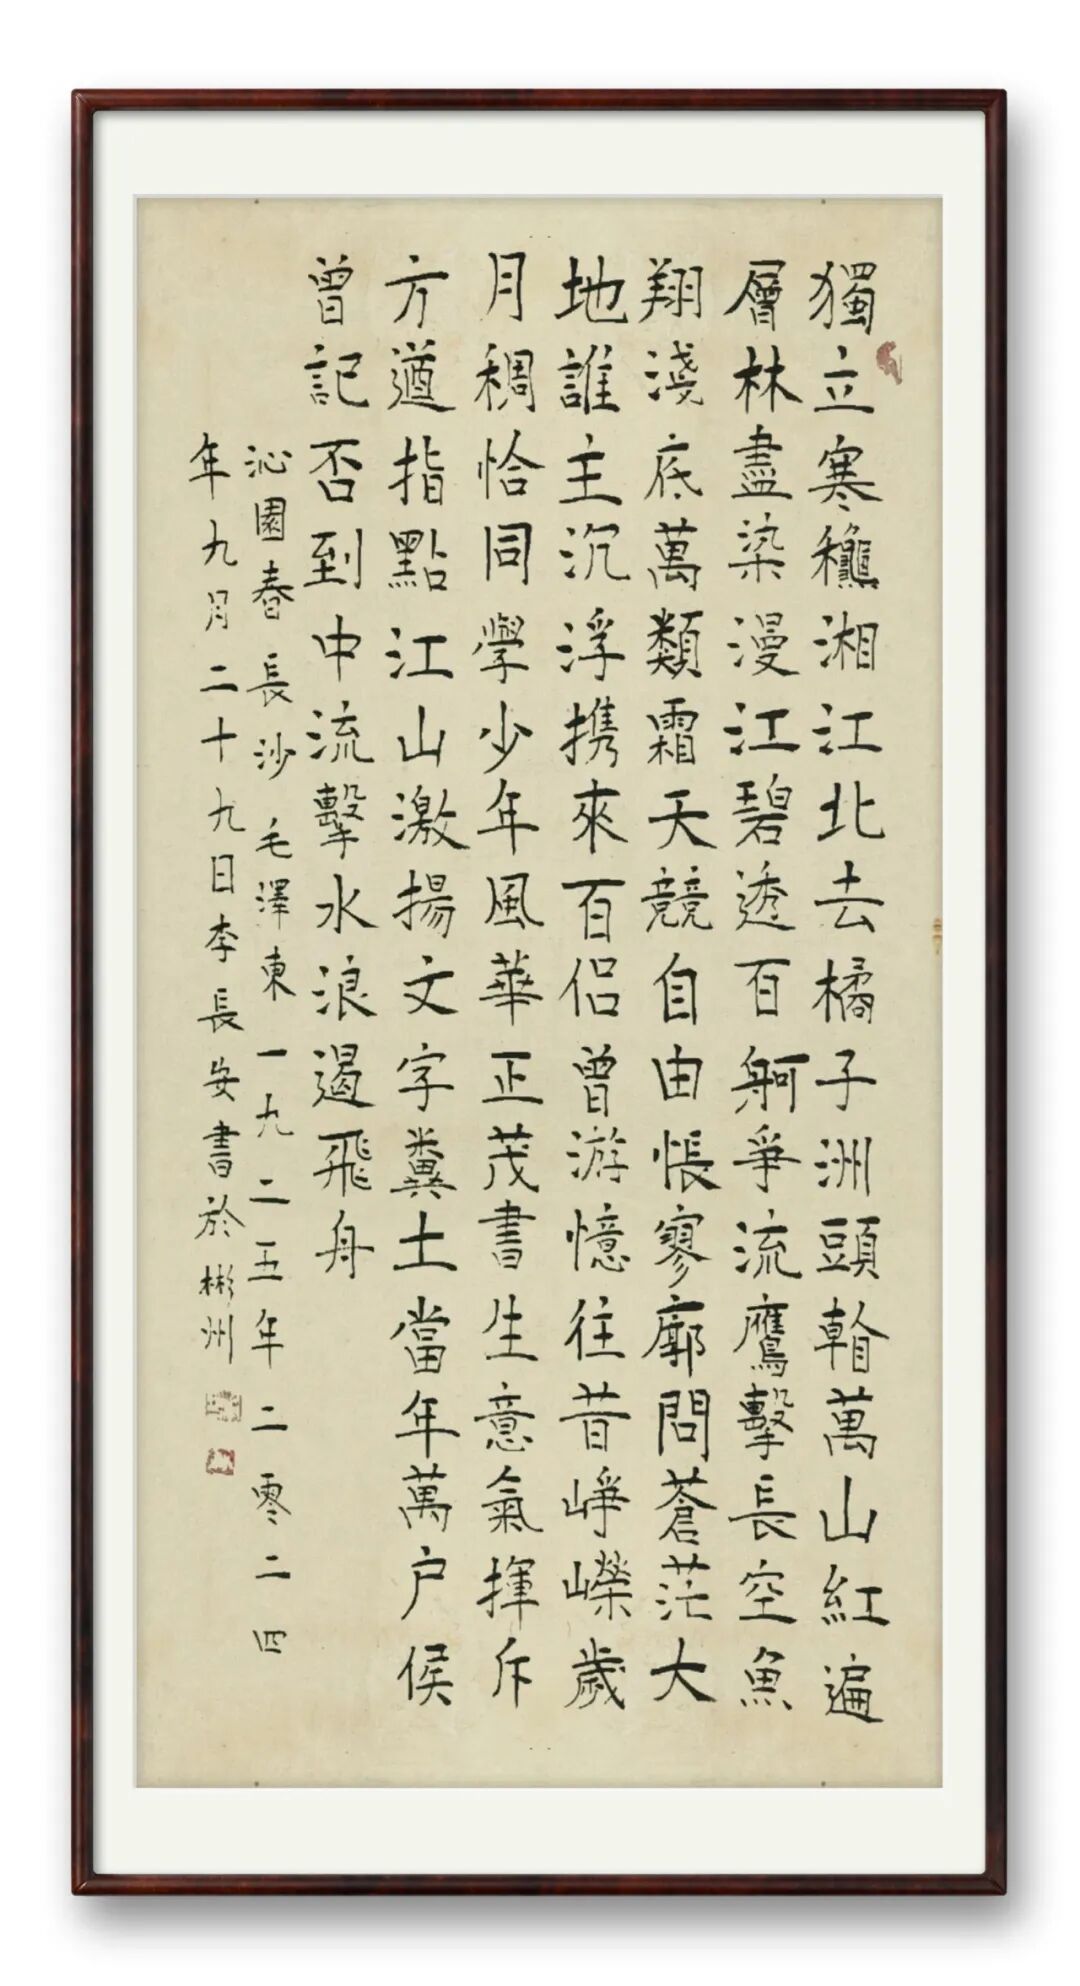 獨立寒龝湘江北去橘子洲頭萬山紅遍
層林盡染漫江碧透百舸爭流鷹擊長空魚
翔淺底萬類霜天競自由悵寥廓問蒼茫大
地誰主沉浮携來百侣曾游憶往昔崢嶸歲
月稠恰同學少年風華正茂書生意氣揮斥
方遒指點江山激揚文字糞土當年萬户侯
曾記否到中流擊水浪遏飛舟
沁園春長沙毛澤東一九二五年二零二四
年九月二十九日李長安書於彬州